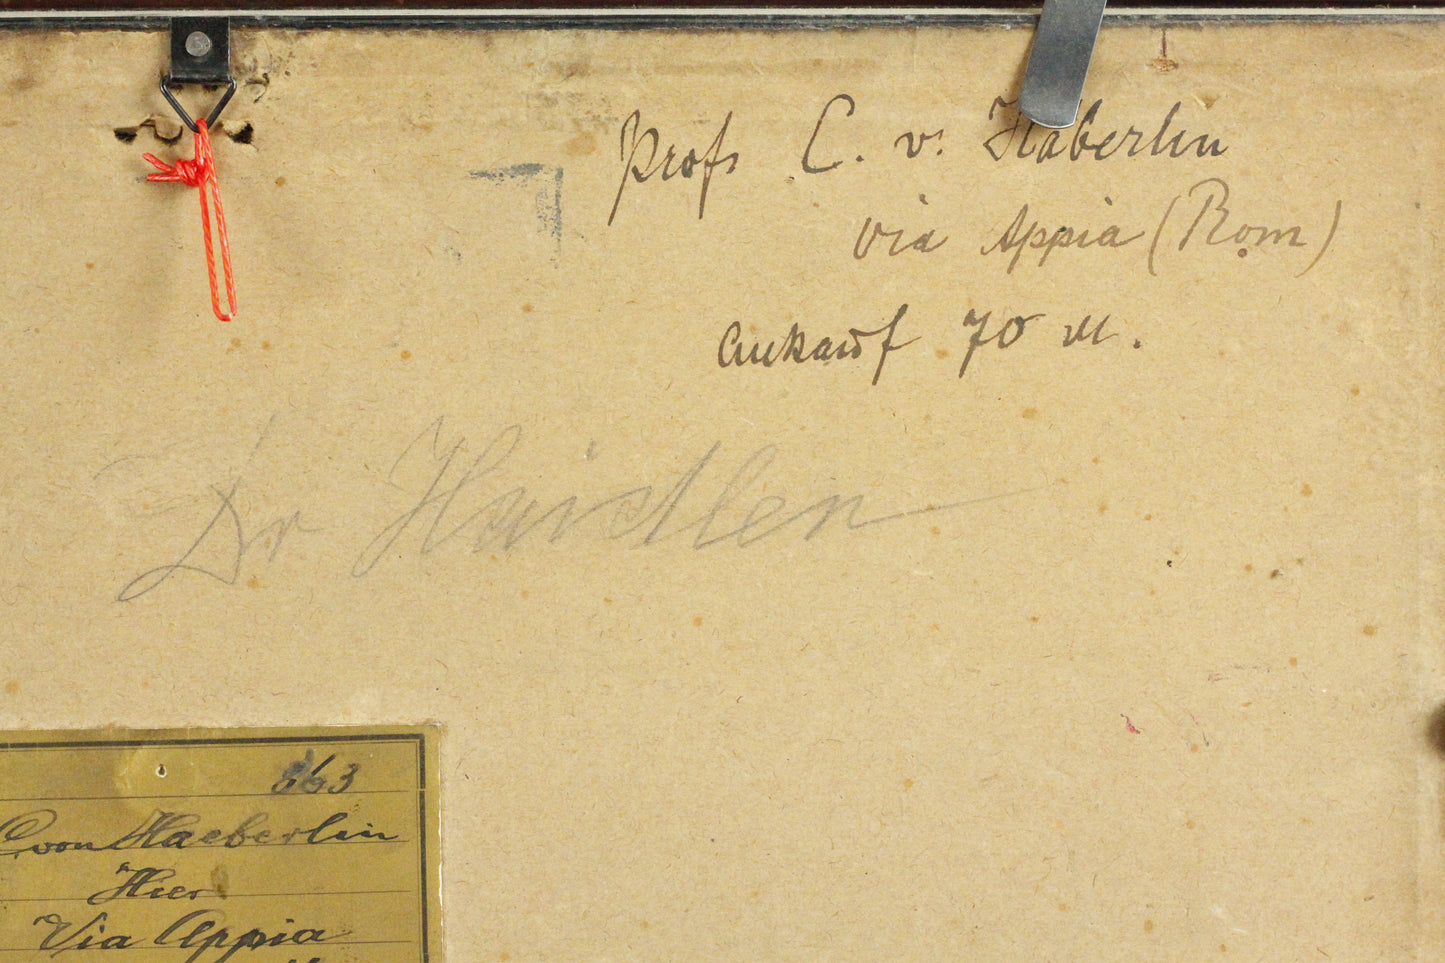 Prof. C. v. Häberlin
via Appia (Rom)
Ankauf 70 M.
Dr
863
C. von Haeberlin
Hier
Via Appia